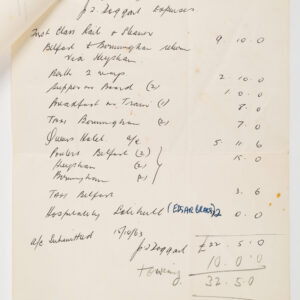 J J Doggart Expenses
First Class Rail & Steamer
Belfast to Birmingham return
via Heysham 9. 10. 0
Berth 2 ways 2. 10. 0
Supper on Board (2) 1. 0. 0
Breakfast on Train (1) 8. 0
Taxi Birmingham 7. 0
Queens Hotel a/c 5. 11. 6
Porters Belfast (2)
Heysham (2) 15. 0
Birmingham (2)
Taxi Belfast 3. 6
Hospitality 2. 0. 0
a/c Submitted 15/10/63
J J Doggart £22. 5. 0
10. 0. 0
32. 5. 0